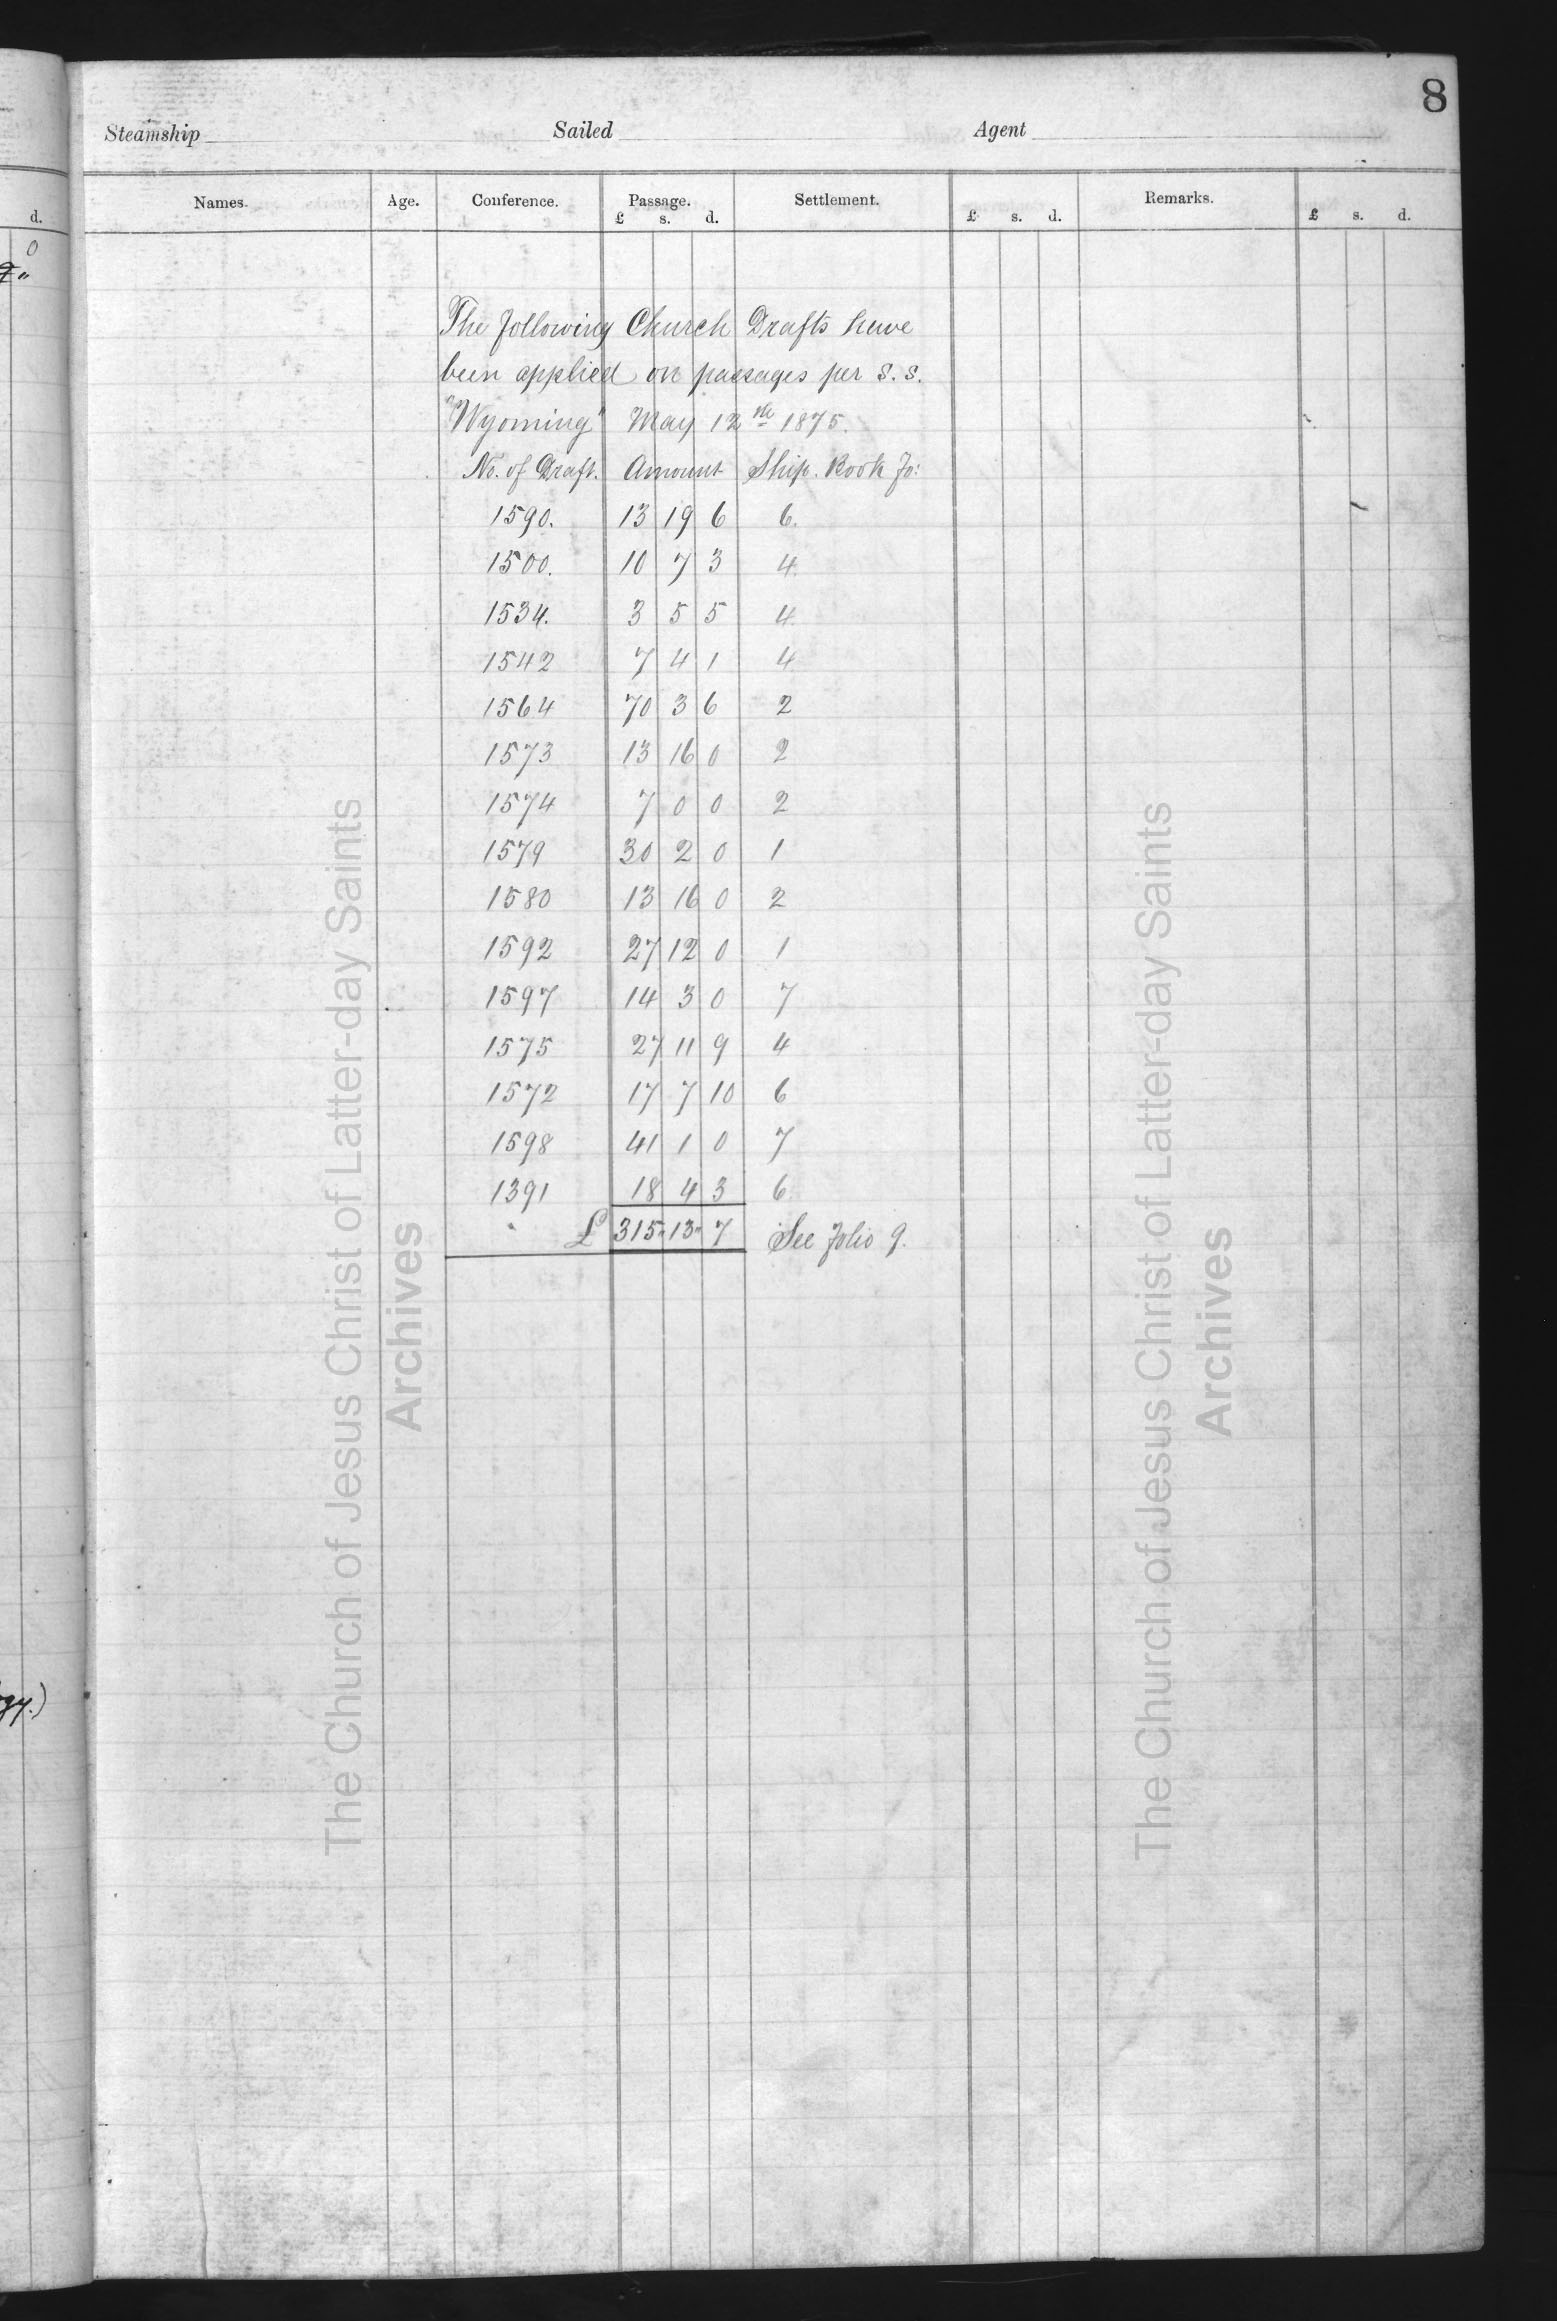 8
Steamship Sailed Agent
Names. Age. Conference. Passage. Settlement. Remarks.
£ s. d. £ s. d. £ s. d.
d.
0
The following Church Drafts have
been applied on passages per S. S.
"Wyoming" May 12th 1875.
No. of Draft. Amount Ship. Book fo:
1590. 13 19 6 6.
1500. 10 7 3 4.
1534. 3 5 5 4.
1542 7 4 1 4
1564 70 3 6 2
1573 13 16 0 2
1574 7 0 0 2
1579 30 2 0 1
1580 13 16 0 2
1592 27 12 0 1
1597 14 3 0 7
1575 27 11 9 4
1572 17 7 10 6
1598 41 1 0 7
1391 18 4 3 6
£ 315" 13" 7 See folio 9.
The Church of Jesus Christ of Latter-day Saints
Archives
The Church of Jesus Christ of Latter-day Saints
Archives